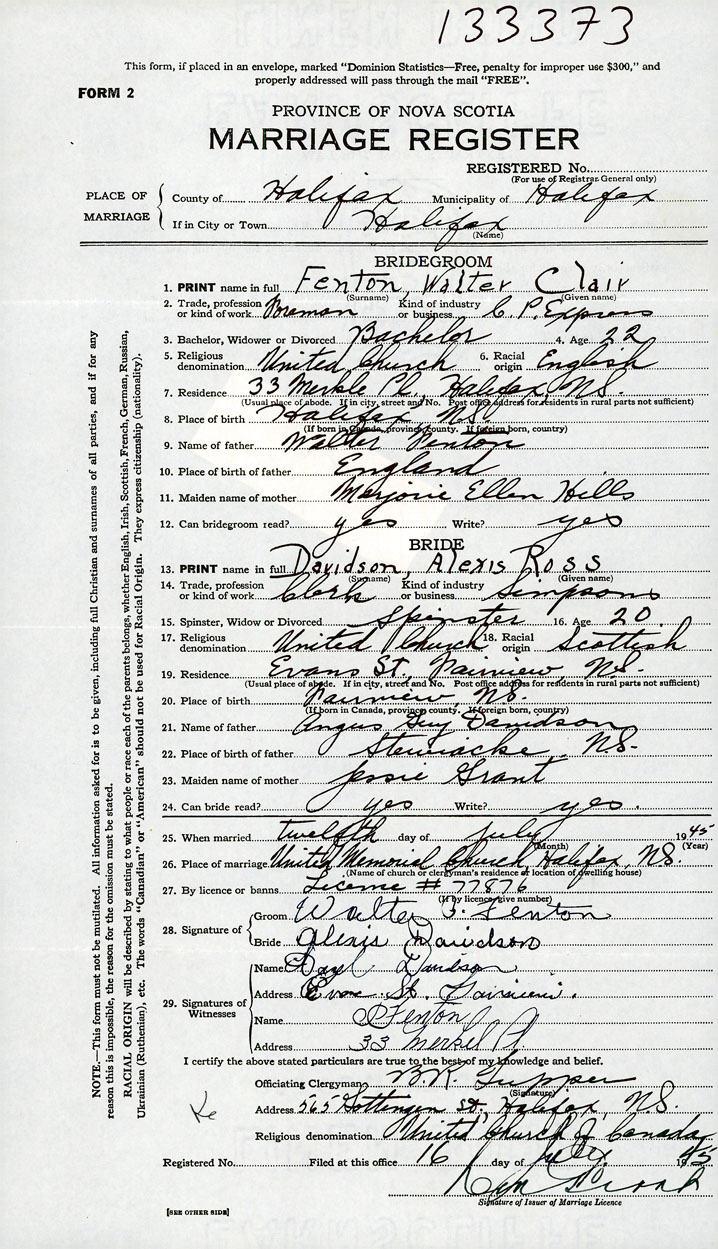 133373
This form, if placed in an envelope, marked "Dominion Statistics—Free, penalty for improper use $300," and
properly addressed will pass through the mail "FREE".
FORM 2
PROVINCE OF NOVA SCOTIA
MARRIAGE REGISTER
REGISTERED No.
(For use of Registrar General only)
PLACE OF MARRIAGE
County of Halifax Municipality of Halifax
If in City or Town Halifax
(Name)
BRIDEGROOM
1. PRINT name in full Fenton, Walter Clair
(Surname) (Given name)
2. Trade, profession or kind of work Foreman Kind of industry or business C. P. Express
3. Bachelor, Widower or Divorced Bachelor 4. Age 22
5. Religious denomination United Church 6. Racial origin English
7. Residence 33 Merkle Pl., Halifax, N.S.
(Usual place of abode. If in city, street and No. Post office address for residents in rural parts not sufficient)
8. Place of birth Halifax N.S.
(If born in Canada, province, county. If foreign born, country)
9. Name of father Walter Fenton
10. Place of birth of father England
11. Maiden name of mother Marjorie Ellen Hills
12. Can bridegroom read? yes Write? yes
BRIDE
13. PRINT name in full Davidson, Alexis Ross
(Surname) (Given name)
14. Trade, profession or kind of work Clerk Kind of industry or business Simpsons
15. Spinster, Widow or Divorced Spinster 16. Age 20.
17. Religious denomination United Church 18. Racial origin Scottish
19. Residence Evans St., Fairview, N.S.
(Usual place of abode. If in city, street and No. Post office address for residents in rural parts not sufficient)
20. Place of birth Fairview, N.S.
(If born in Canada, province county. If foreign born, country)
21. Name of father Angus Guy Davidson
22. Place of birth of father Stewiacke, N.S.
23. Maiden name of mother Jessie Grant
24. Can bride read? yes Write? yes.
25. When married twelfth day of July 1945
(Month) (Year)
26. Place of marriage United Memorial Church, Halifax, N.S.
(Name of church or clergyman's residence or location of dwelling house)
27. By licence or banns License # 77876
(If by licence, give number)
28. Signature of
Groom Walter C. Fenton
Bride Alexis Davidson
29. Signatures of Witnesses
Name Davidson
Address St. Fairview.
Name Fenton
Address 33 Merkel Pl
I certify the above stated particulars are true to the best of my knowledge and belief.
Officiating Clergyman B.R. Tupper
(Signature)
Address 565 Gottengen St., Halifax, N.S.
Religious denomination United Church of Canada
Registered No. Filed at this office 16 day of July 1945
Signature of Issuer of Marriage Licence
[SEE OTHER SIDE]
NOTE.—This form must not be mutilated. All information asked for is to be given, including full Christian and surnames of all parties, and if for any
reason this is impossible, the reason for the omission must be stated.
RACIAL ORIGIN will be described by stating to what people or race each of the parents belongs, whether English, Irish, Scottish, French, German, Russian,
Ukrainian (Ruthenian), etc. The words "Canadian" or "American" should not be used for Racial Origin. They express citizenship (nationality).